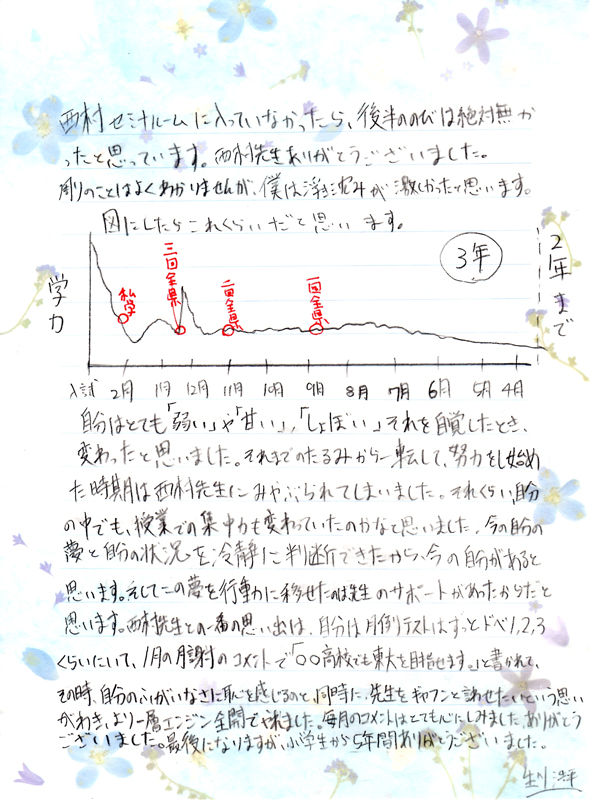 西村ゼミナルームに入っていなかったら、後半ののびは絶対無か
ったと思っています。西村先生ありがとうございました。
周りのことはよくわかりませんが、僕は浮き沈みが激しかったと思います。
図にしたらこれくらいだと思います。
学力
私学
三回全県
二回全県
一回全県
3年
2年まで
入試 2月 1月 12月 11月 10月 9月 8月 7月 6月 5月 4月
自分はとても「弱い」や「甘い」、「しょぼい」それを自覚したとき、
変わったと思いました。それまでのたるみから一転して、努力をし始め
た時期は西村先生にみやぶられてしまいました。それくらい、自分
の中でも、授業での集中力も変わっていたのかなと思いました。今の自分の
夢と自分の状況を冷静に判断できたから、今の自分があると
思います。そしてこの夢を行動に移せたのは先生のサポートがあったからだと
思います。西村先生との一番の思い出は、自分は月例テストはずっとドベ1,2,3
くらいにいて、1月の月謝のコメントで「〇〇高校でも東大を目指せます。」と書かれて、
その時、自分のふがいなさに恥を感じるのと、同時に、先生をギャフンと言わせたいという思い
がわき、より一層エンジン全開でやれました。毎月のコメントはとても心にしみました。ありがとう
ございました。最後になりますが、小学生から5年間ありがとうございました。